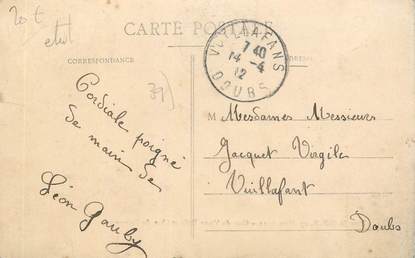 20 t
etat
CARTE POSTALE
CORRESPONDANCE
VUILLAFANS
7 40
14 - 4
12
DOUBS
Cordiale poigné
de main de
Léon Gauby
M Mesdames Messieurs
Jacquet Virgile
Vuillafant
Doubs